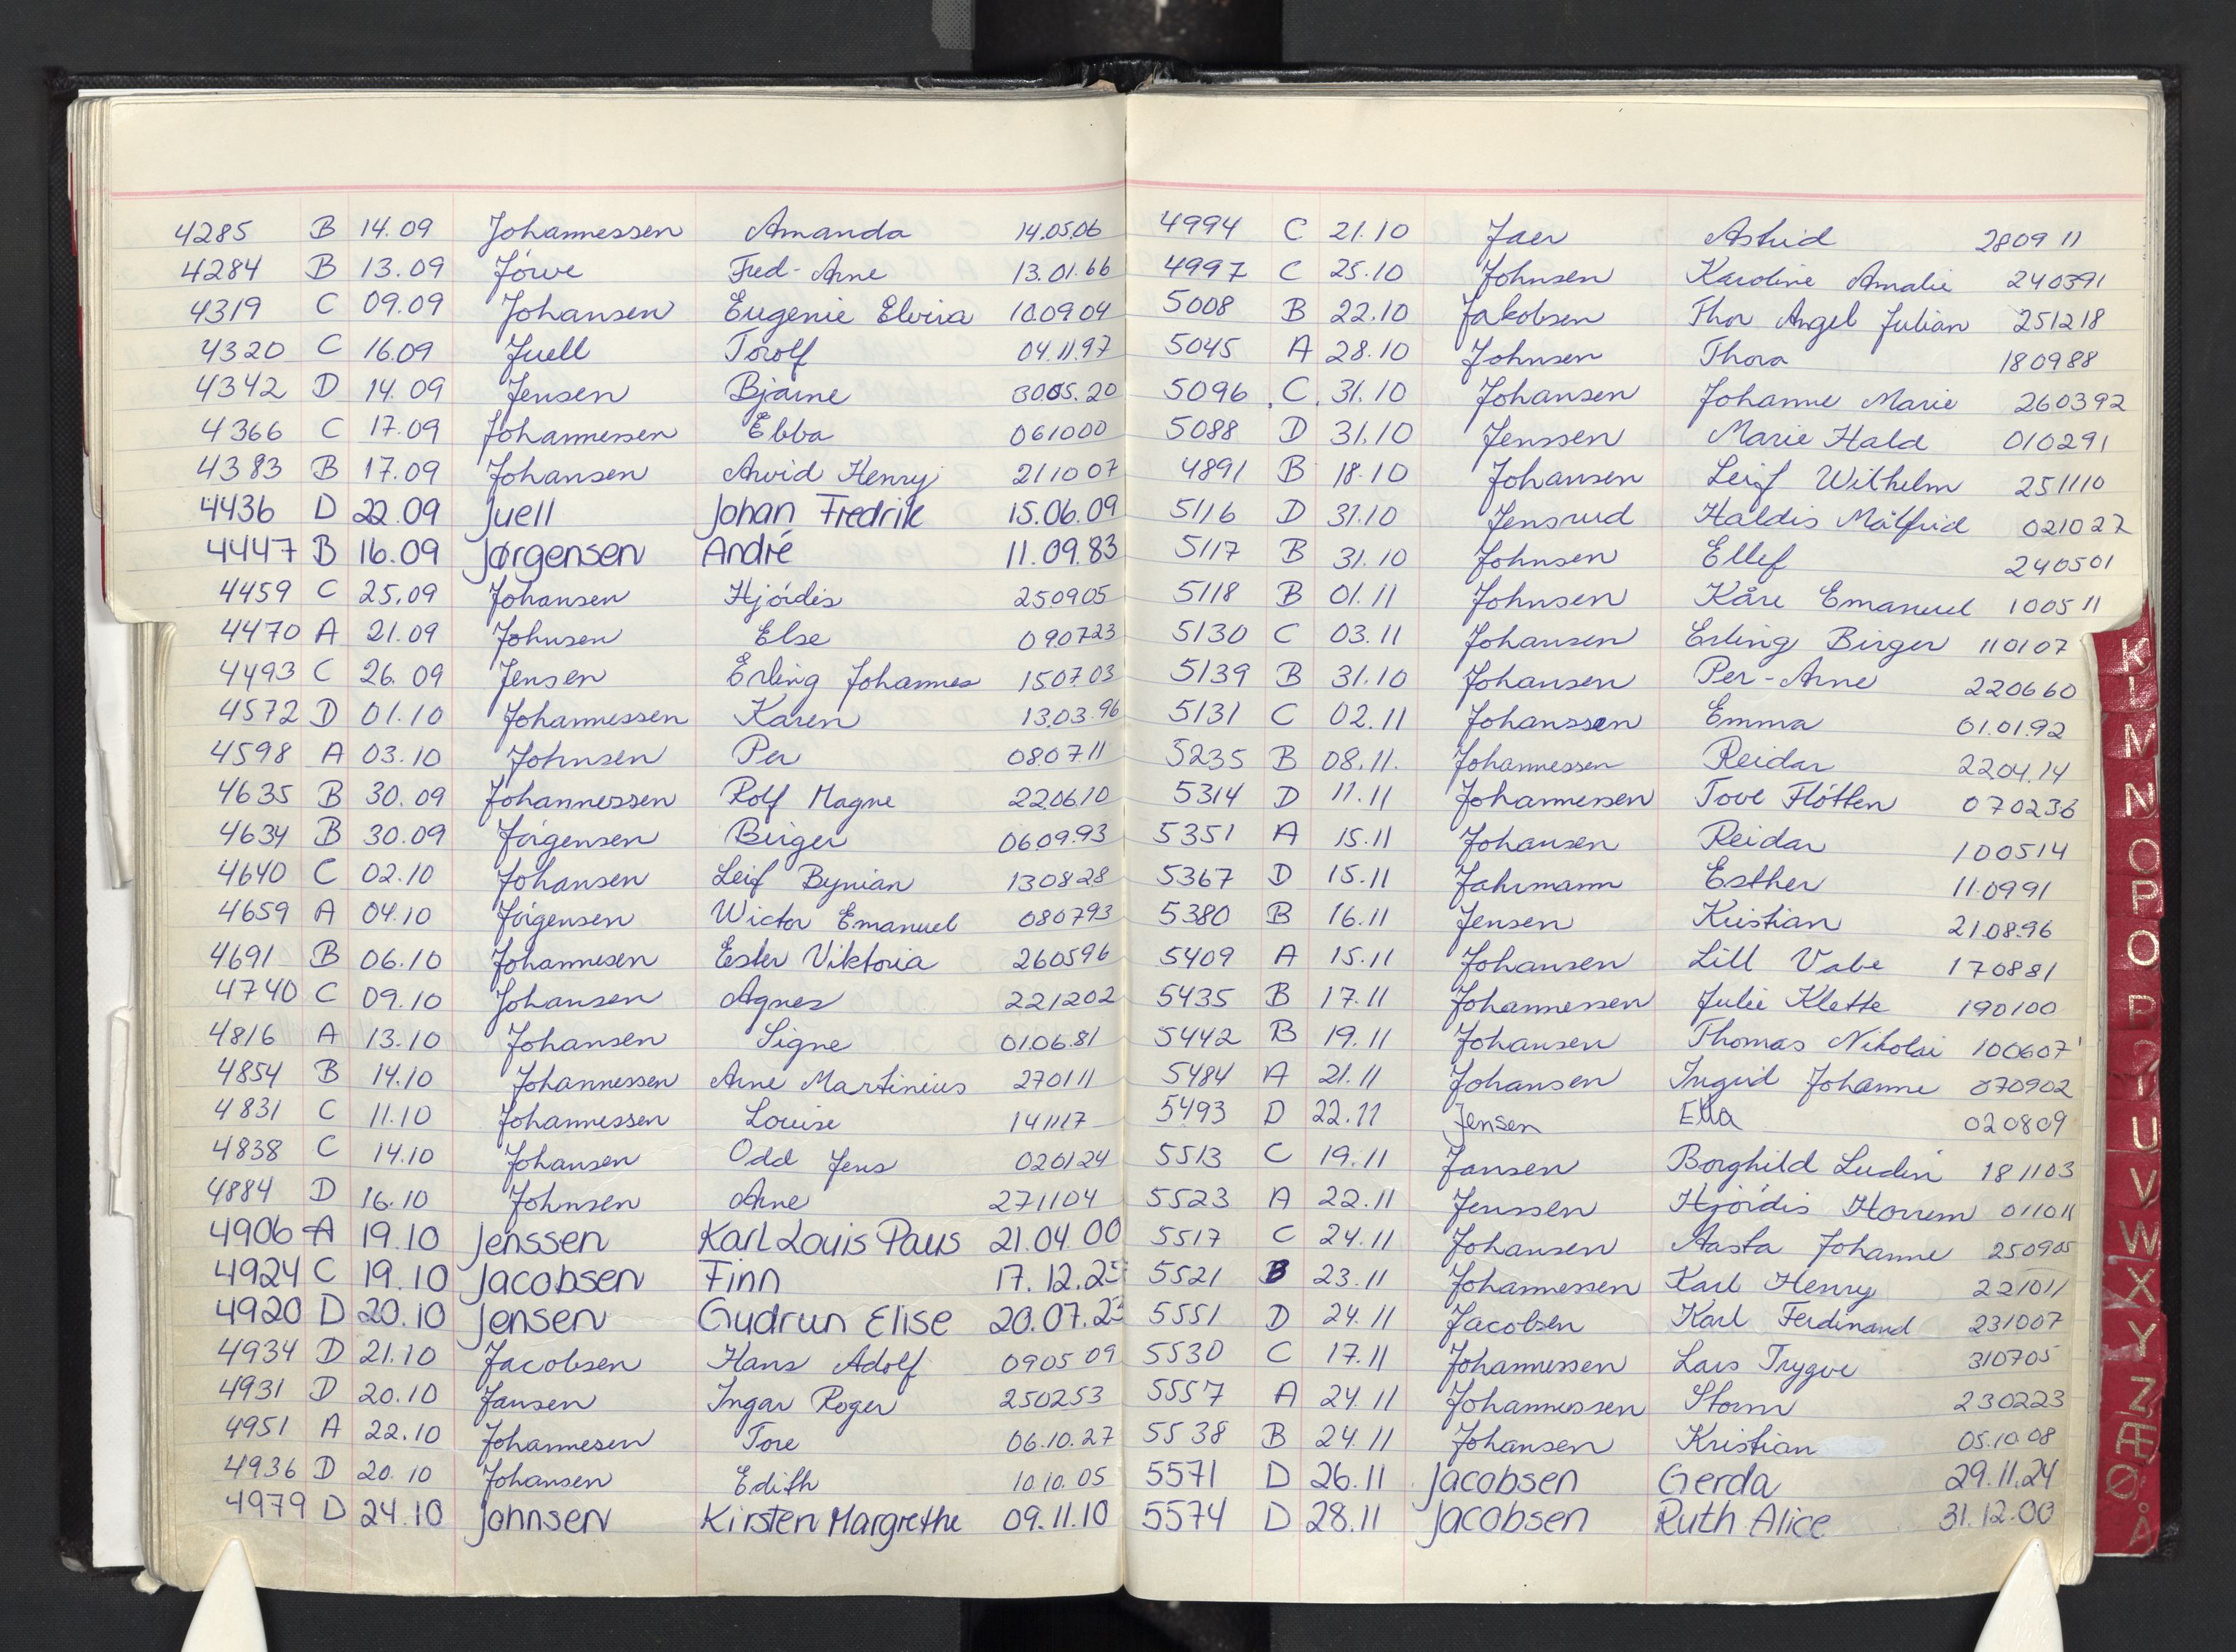 4285 B 14.09 Johannessen Amanda 14.05.06
4284 B 13.09 Jørve Fred-Arne 13.01.66
4319 C 09.09 Johansen Eugenie Elvira 10.09 04
4320 C 16.09 Juell Torolf 04.11.97
4342 D 14.09 Jensen Bjarne 3005.20
4366 C 17.09 Johannessen Ebba 061000
4383 B 17.09 Johansen Arvid Henry 211007
4436 D 22.09 Juell Johan Fredrik 15.06.09
4447 B 16.09 Jørgensen André 11.09.83
4459 C 25.09 Johansen Hjórdis 250905
4470 A 21.09 Johnsen Else 090723
4493 C 26.09 Jensen Erling Johannes 1507.03
4572 D 01.10 Johannessen Karen 13.03.96
4598 A 03.10 Johnsen Per 080711
4635 B 30.09 Johannessen Rolf Magne 220610
4634 B 30.09 Jórgensen Birger 0609.93
4640 C 02.10 Johansen Leif Bynian 130828
4659 A 04.10 Jórgensen Wictor Emanuel 080793
4691 B 06.10 Johannesen Ester Viktoria 260596
4740 C 09.10 Johansen Agnes 221202
4816 A 13.10 Johansen Signe 01.06.81
4854 B 14.10 Johannessen Arne Martinius 270111
4831 C 11.10 Johannessen Louise 141117
4838 C 14.10 Johansen Odd Jens 020124
4884 D 16.10 Johnsen Arne 271104
4906 A 19.10 Jenssen Karl Louis Paus 21.04.00
4924 C 19.10 Jacobsen Finn 17.12.25
4920 D 20.10 Jensen Gudrun Elise 20.07.23
4934 D 21.10 Jacobsen Hans Adolf 0905 09
4931 D 20.10 Jansen Ingar Roger 250253
4951 A 22.10 Johannesen Tore 06.10.27
4936 D 20.10 Johansen Edith 10.10.05
4979 D 24.10 Johnsen Kirsten Margrethe 09.11.10
4994 C 21.10 Jaer Astrid 2809 11
4997 C 25.10 Johnsen Karoline Amalie 240391
5008 B 22.10 Jakobsen Thor Angel Julian 251218
5045 A 28.10 Johnsen Thora 180988
5096 C 31.10 Johansen Johanne Marie 260392
5088 D 31.10 Jenssen Marie Hald 010291
4891 B 18.10 Johansen Leif Wilhelm 251110
5116 D 31.10 Jensrud Haldis Målfrid 021027
5117 B 31.10 Johnsen Ellef 240501
5118 B 01.11 Johnsen Kåre Emanuel 1005 11
5130 C 03.11 Johansen Erling Birger 110107
5139 B 31.10 Johansen Per-Arne 220660
5131 C 02.11 Johanssen Emma 01.01.92
5235 B 08.11. Johannessen Reidar 2204.14
5314 D 11.11 Johannessen Tove Flótten 070236
5351 A 15.11 Johansen Reidar 100514
5367 D 15.11 Jahrmann Esther 11.0991
5380 B 16.11 Jensen Kristian 21.08.96
5409 A 15.11 Johansen Lill Vabe 170881
5435 B 17.11 Johannessen Julie Klette 190100
5442 B 19.11 Johansen Thomas Nikolai 100607
5484 A 21.11 Johansen Ingrid Johanne 070902
5493 D 22.11 Jensen Ella 020809
5513 C 19.11 Jansen Borghild Ludin 181103
5523 A 22.11 Jenssen Hjórdis Horrem 011011
5517 C 24.11 Johansen Aasta Johanne 250905
5521 B 23.11 Johannessen Karl Henry 221011
5551 D 24.11 Jacobsen Karl Ferdinand 231007
5530 C 17.11 Johannessen Lars Trygve 310705
5557 A 24.11 Johannessen Storm 230223
5538 B 24.11 Johansen Kristian 05.10.08
5571 D 26.11 Jacobsen Gerda 29.11.24
5574 D 28.11 Jacobsen Ruth Alice 31.12.00
K
L
M
N
O
P
O
P
U
V
W
X
Y
Z
Æ
Ø
Å